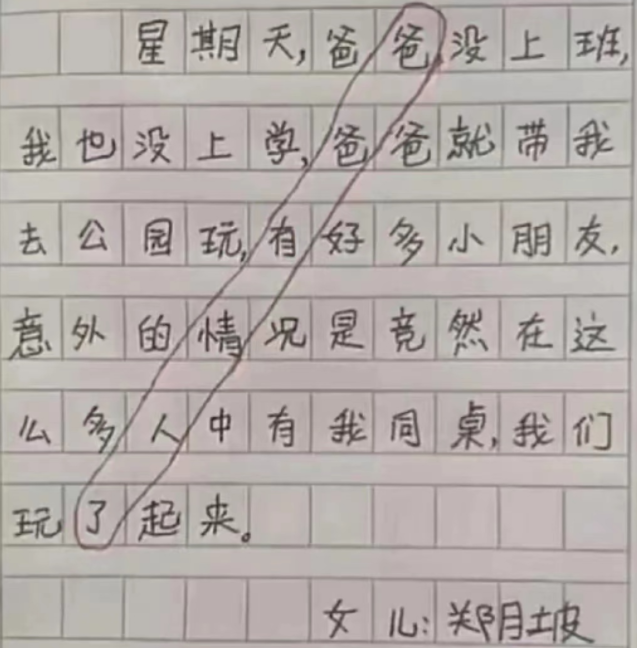 星期天,爸爸没上班,
我也没上学,爸爸就带我
去公园玩,有好多小朋友,
意外的情况是竟然在这
么多人中有我同桌,我们
玩了起来。
女儿:郑月坡